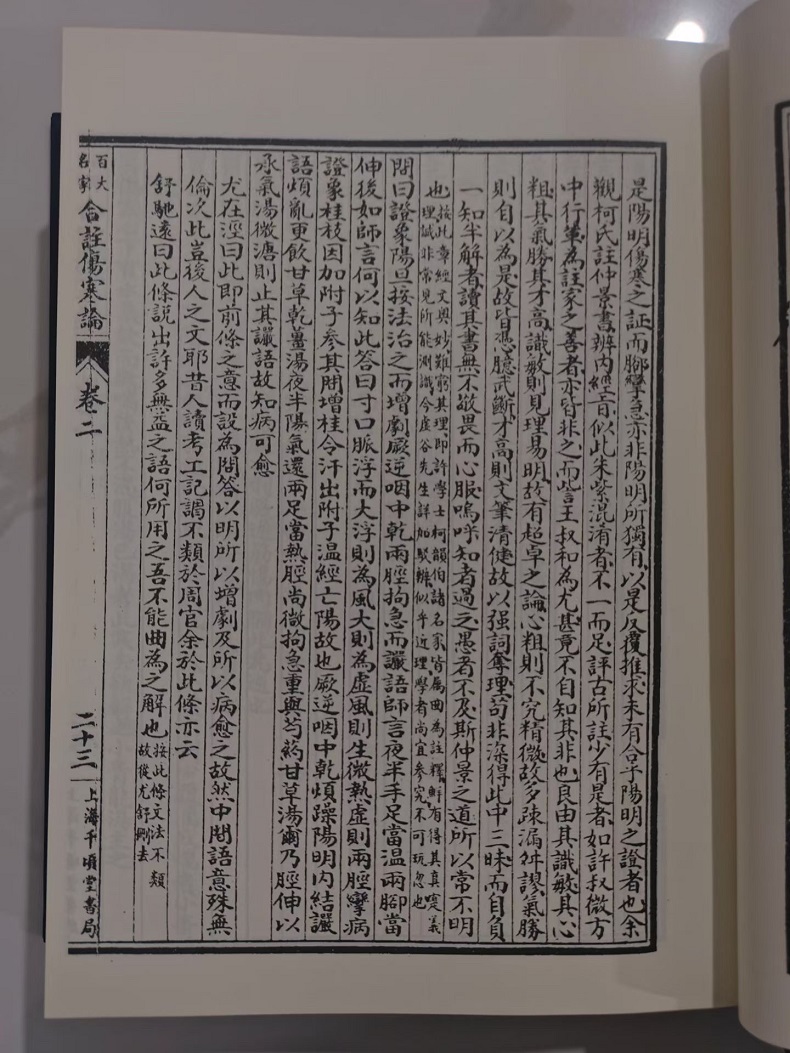 是陽明傷寒之証而腳攣急亦非陽明所獨有以是反覆推求未有合乎陽明之證者也余
觀柯氏註仲景書辨内經旨似此朱紫混淆者不一而足評古所註少有是者如許叔微方
中行輩為註家之善者亦皆非之而訾王叔和為尤甚竟不自知其非也良由其識敏其心
粗其氣勝其才高識敏則見理易明故有超卓之論心粗則不究精微故多疎漏舛謬氣勝
則自以為是故皆憑臆武斷才高則文筆清健故以强詞奪理苟非深得此中三昧而自負
一知半解者讀其書無不敬畏而心服嗚呼知者過之愚者不及斯仲景之道所以常不明
也按此章經文奥妙難窮其理即許學士柯韻伯諸名家皆屬曲為註釋鮮有得其真寔義
理誠非常見所能測識今虛谷先生詳加駁辨似乎近理學者尚宜參究不可玩忽也
問曰證象陽旦按法治之而增劇厥逆咽中乾兩脛拘急而讝語師言夜半手足當温兩腳當
伸後如師言何以知此答曰寸口脈浮而大浮則為風大則為虛風則生微熱虛則兩脛攣病
證象桂枝因加附子參其間增桂令汗出附子温經亡陽故也厥逆咽中乾煩躁陽明内結讝
語煩亂更飲甘草乾薑湯夜半陽氣還兩足當熱脛尚微拘急重與芍藥甘草湯爾乃脛伸以
承氣湯微溏則止其讝語故知病可愈
尤在涇曰此即前條之意而設為問答以明所以增劇及所以病愈之故然中間語意殊無
倫次此豈後人之文耶昔人讀考工記謂不類於周官余於此條亦云
舒馳遠曰此條説出許多無益之語何所用之吾不能曲為之解也按此條文法不類
故從尤舒刪去
百大
名家合註傷寒論
卷二
二十三
上海千頃堂書局